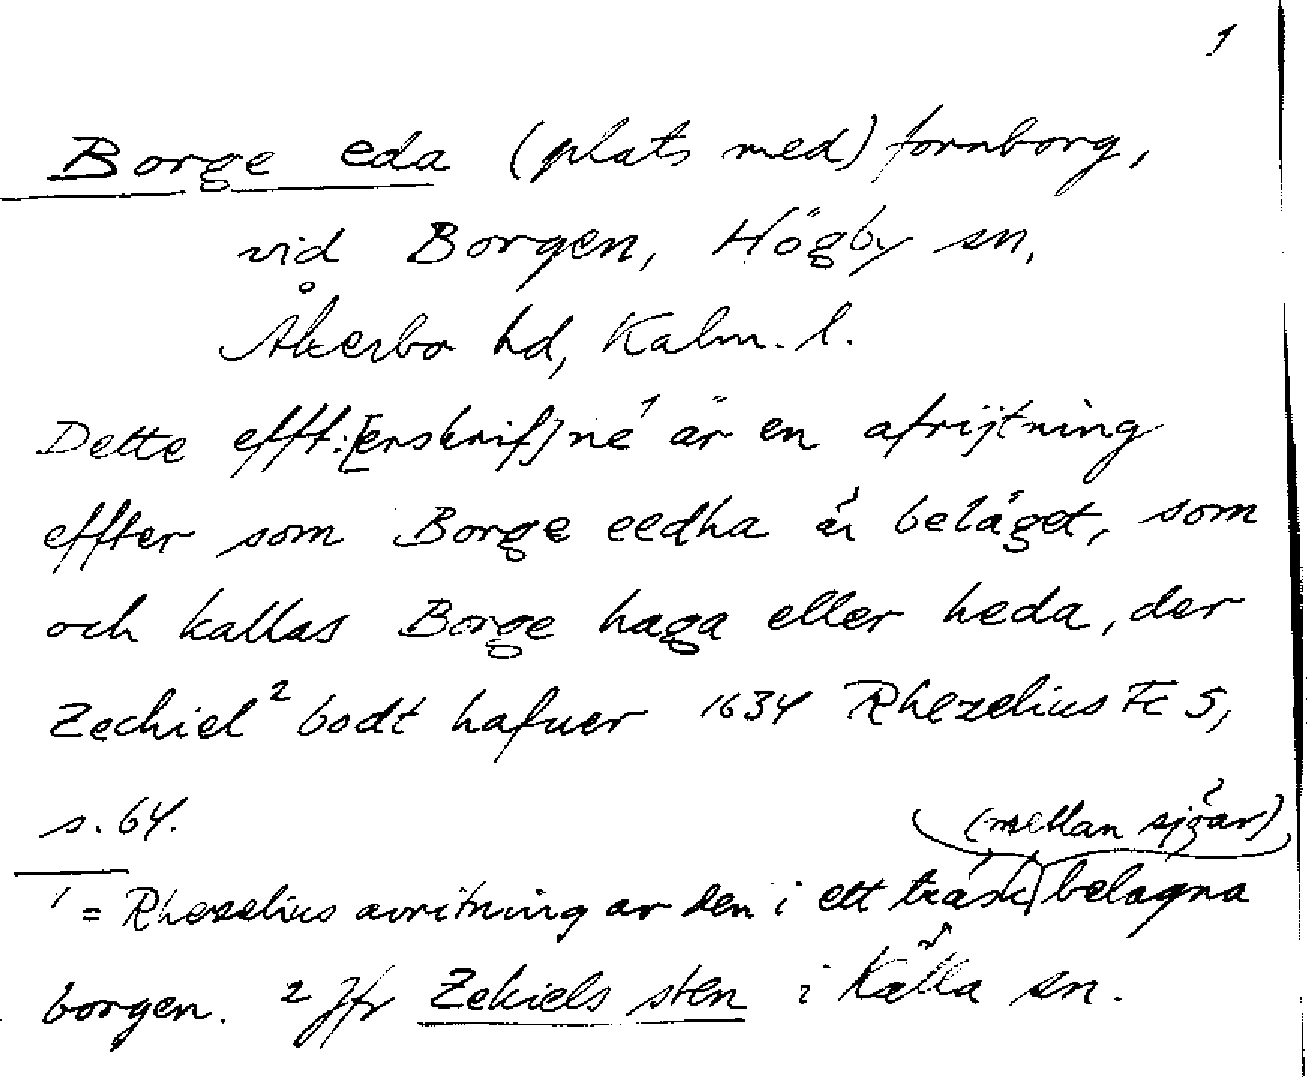 1
Borge eda (plats med) fornborg,
vid Borgen, Högby sn,
Åkerbo hd, Kalm. l.
Dette efft.[erskrif]ne¹ är en afrijtning
effter som Borge eedha är beläget, som
och kallas Borge haga eller heda, der
Zechiel² bodt hafuer 1634 Rhezelius Fc 5,
s. 64.
(mellan sjöar)
¹ = Rhezelius avritning av den i ett träsk belägna
borgen. ² Jfr Zekiels sten i Källa sn.